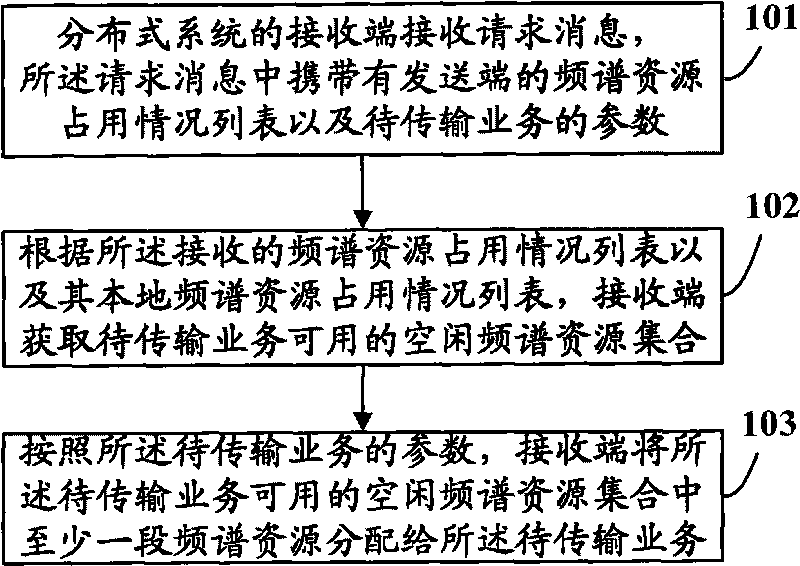 分布式系统的接收端接收请求消息，
所述请求消息中携带有发送端的频谱资源
占用情况列表以及待传输业务的参数
101
根据所述接收的频谱资源占用情况列表以
及其本地频谱资源占用情况列表，接收端
获取待传输业务可用的空闲频谱资源集合
102
按照所述待传输业务的参数，接收端将所
述待传输业务可用的空闲频谱资源集合中
至少一段频谱资源分配给所述待传输业务
103